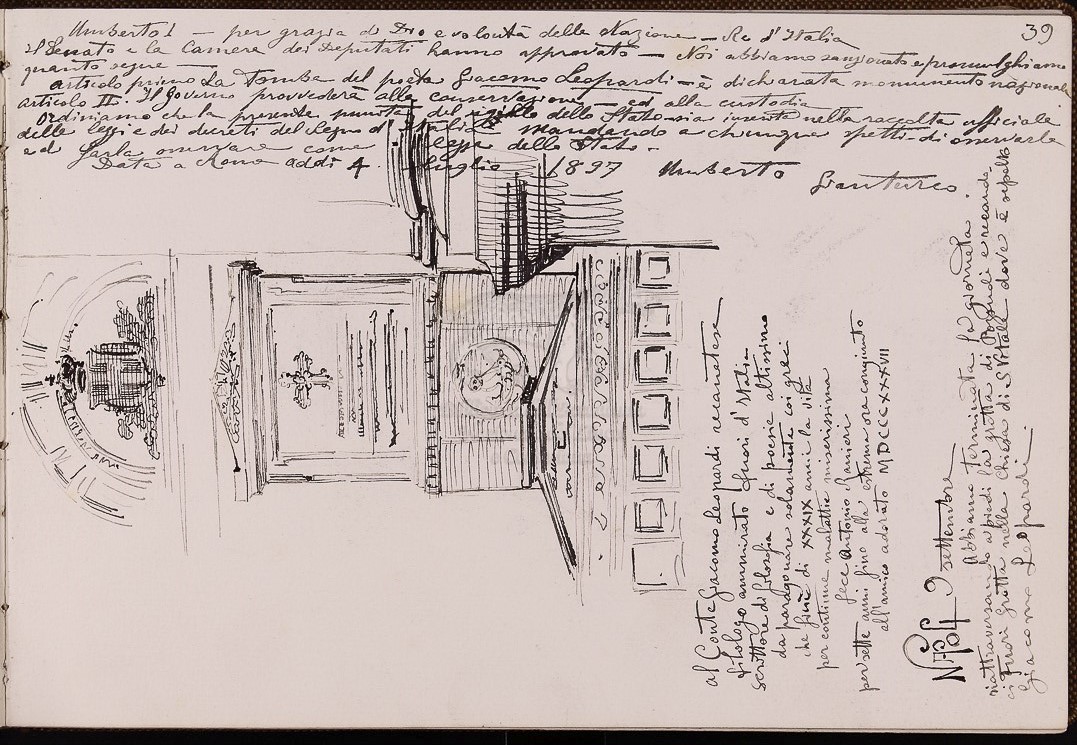 39
Umberto I — per grazia di Dio e volontà della Nazione — Re d'Italia
il Senato e la Camera dei Deputati hanno approvato — Noi abbiamo sanzionato e promulghiamo
quanto segue —
articolo primo La Tomba del poeta Giacomo Leopardi — è dichiarata monumento nazionale
articolo II. Il Governo provvederà alla conservazione — ed alla custodia
Ordiniamo che la presente munita del sigillo dello Stato sia inserta nella raccolta ufficiale
delle leggi e dei decreti del Regno d'Italia mandando a chiunque spetti di osservarla
ed farla osservare come legge dello Stato.
Data a Roma addì 4 Luglio 1897 Umberto
Gianturco
al Conte Giacomo Leopardi recanatese
filologo ammirato fuori d'Italia
scrittore di filosofia e di poesie altissimo
da paragonare solamente coi greci
che finì di XXXIX anni la vita
per continue malattie miserissima
fece Antonio Ranieri
per sette anni fino alla estrema ora congiunto
all'amico adorato MDCCCXXXVII
Napoli 9 settembre
Abbiamo terminata la giornata
riattraversando a piedi la grotta di Pozzuoli e recando
ci Fuori Grotta nella Chiesa di S Vitale dove è sepolto
Giacomo Leopardi.